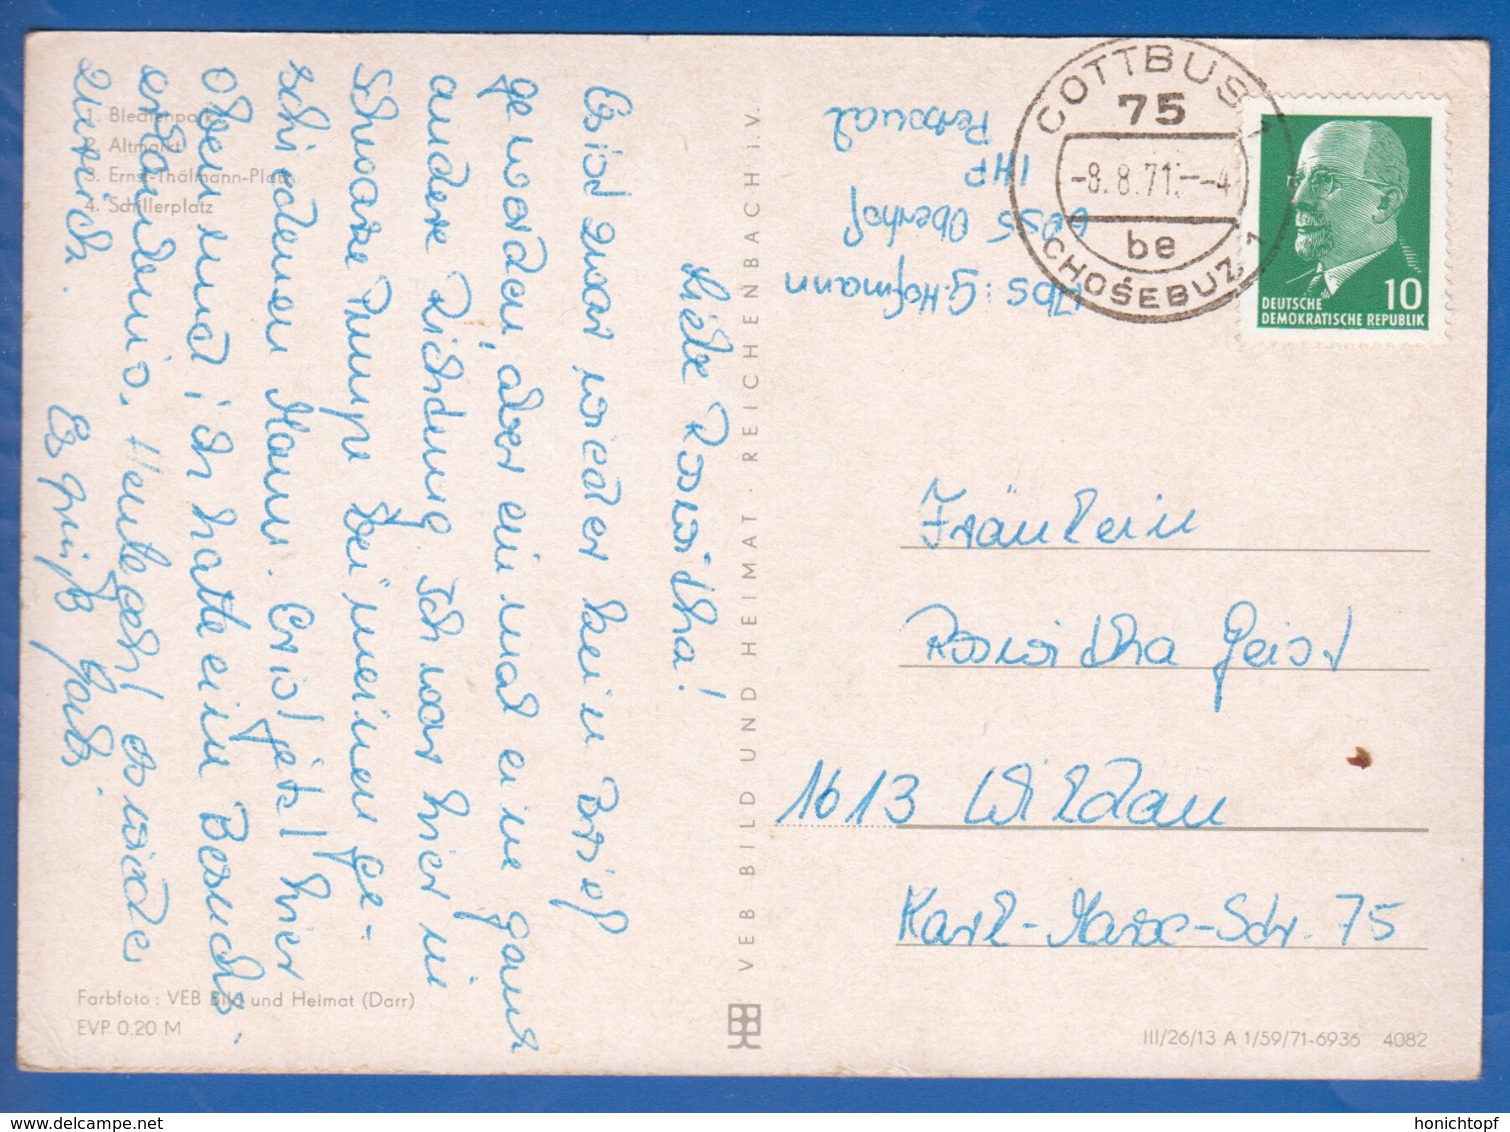 1. Blechenpark
2. Altmarkt
3. Ernst-Thälmann-Platz
4. Schillerplatz
Liebe Roswitha!
Es ist zwar wieder kein Brief
geworden, aber ein mal eine ganz
andere Richtung. Ich war hier in
Schwarze Pumpe bei meinem ge-
schiedenen Mann. Er ist jetzt hier
oben und ich hatte ein Besuchs-
erlaubnis. Heute geht es wieder
zurück.
Es grüßt
Farbfoto: VEB Bild und Heimat (Darr)
EVP 0.20 M
VEB BILD UND HEIMAT · REICHENBACH i. V.
Abs: G. Hofmann
6055 Oberhof
IHP
Personal
COTTBUS 1
75
-8.8.71.--4
be
CHOŚEBUZ 1
10
DEUTSCHE
DEMOKRATISCHE REPUBLIK
Fräulein
Roswitha Geist
1613 Wildau
Karl-Marx-Str. 75
III/26/13 A 1/59/71-6936 4082
honichtopf
www.delcampe.net